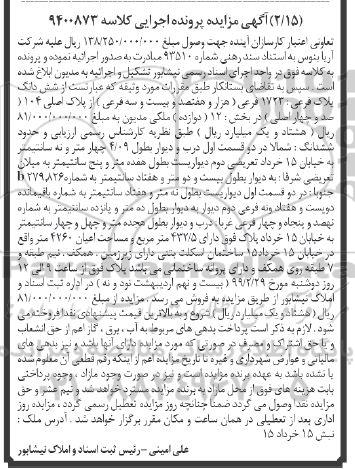 (۲/۱۵) آگهی مزایده پرونده اجرایی کلاسه ۹۴۰۰۸۷۳
تعاونی اعتبار کارسازان آینده جهت وصول مبلغ ۱۳۸/۲۵۰/۰۰۰/۰۰۰ ریال علیه شرکت
آریا بنوس به استناد سند رهنی شماره ۹۳۵۱۰ مبادرت به صدور اجرائیه نموده و پرونده
به کلاسه فوق در واحد اجرای اسناد رسمی نیشابور تشکیل و اجرائیه به مدیون ابلاغ شده
است. سپس به تقاضای بستانکار طبق مقررات مورد وثیقه که عبارتست از شش دانگ
پلاک فرعی: ۱۷۲۳ فرعی (هزار و هفتصد و بیست و سه فرعی) از پلاک اصلی ۱۰۴ (
صد و چهار اصلی) در بخش: ۱۲ (دوازده) ملکی مدیون به مبلغ ۸۱/۰۰۰/۰۰۰/۰۰۰
ریال (هشتاد و یک میلیارد ریال) طبق نظریه کارشناس رسمی ارزیابی و حدود
ششدانگ: شمالا در دو قسمت اول درب و دیوار بطول ۴/۰۹ چهار متر و نه سانتیمتر
به خیابان ۱۵ خرداد تعریضی دوم دیواریست بطول هفده متر و پنج سانتیمتر به میلان
تعریضی شرقا: به دیوار بطول بیست و دو متر و هفتاد سانتیمتر به شماره ۲۷۹٫۸۲۶b
جنوبا: در دو قسمت اول دیواریست بطول نه متر و هفتاد سانتیمتر به شماره باقیمانده
دویست و هفتاد ونه فرعی دوم دیوار به دیوار بطول ده متر و پانزده سانتیمتر به شماره
نهصد و پنجاه و چهار فرعی غربا: درب و دیوار بطول هجده متر و چهل و چهار سانتیمتر
به خیابان ۱۵ خرداد پلاک فوق دارای ۴۳۷/۵ متر مربع و مساحت اعیان ۴۲۶۰ متر واقع
در خیابان ۱۵ خرداد ساختمان اسکلت بتنی دارای زیرزمین. همکف. نیم طبقه و
۷ طبقه روی همکف و دارای پروانه ساختمانی می باشد پلاک فوق از ساعت ۹ الی ۱۲
روز دوشنبه مورخ ۹۹/۲/۲۹ (بیست و نهم اردیبهشت نود و نه) در اداره ثبت اسناد و
املاک نیشابور از طریق مزایده به فروش می رسد. مزایده از مبلغ ۸۱/۰۰۰/۰۰۰/۰۰۰
ریال (هشتاد و یک میلیارد ریال) شروع و به بالاترین قیمت پیشنهادی نقدا فروخته می
شود. لازم به ذکر است پرداخت بدهی های مربوط به آب، برق، گاز اعم از حق انشعاب
و یا حق اشتراک و مصرف در صورتی که مورد مزایده دارای آنها باشد و نیز بدهی های
مالیاتی و عوارض شهرداری و غیره تا تاریخ مزایده اعم از اینکه رقم قطعی آن معلوم شده
یا نشده باشد به عهده برنده مزایده است و نیز در صورت وجود مازاد، وجوه پرداختی
بابت هزینه های فوق از محل مازاد به برنده مزایده مسترد خواهد شد و نیم عشر و حق
مزایده نقدا وصول می گردد ضمنا چنانچه روز مزایده تعطیل رسمی گردد، مزایده روز
اداری بعد از تعطیلی در همان ساعت و مکان مقرر برگزار خواهد شد. آدرس ملک:
نبش ۱۵ خرداد ۱۵
علی امینی - رئیس ثبت اسناد و املاک نیشابور